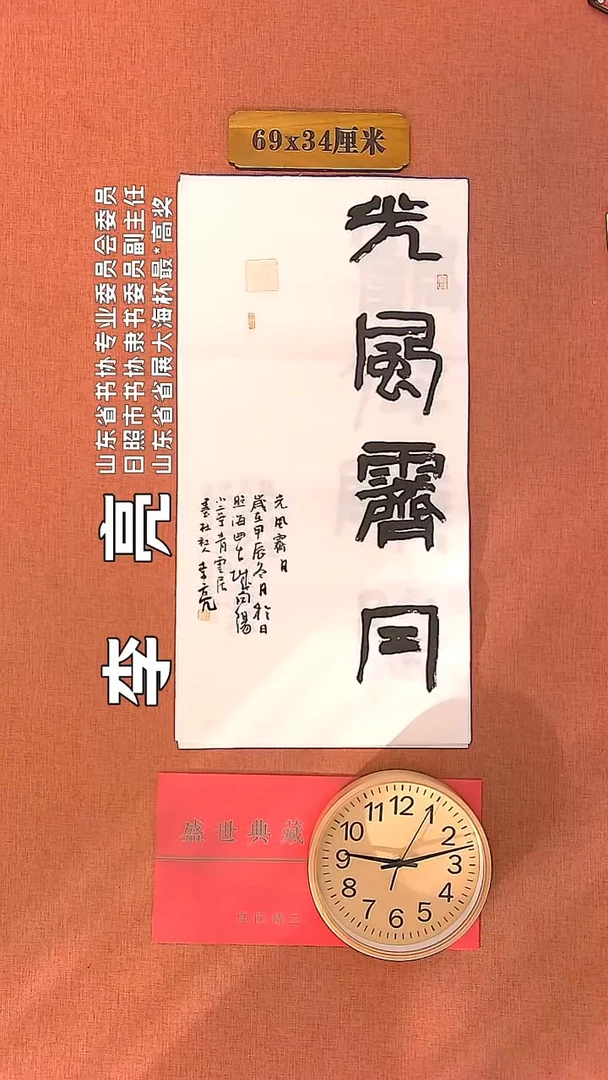 69x34厘米
光
風
霽
日
光風霽日
歲在甲辰冬月於日
照海曲古城向陽
小學青雲居
李亮
山东省书协专业委员会委员
日照市书协隶书委员副主任
山东省省展大海杯最*高奖
李亮
盛世典藏
12
1
2
3
4
5
6
7
8
9
10
11